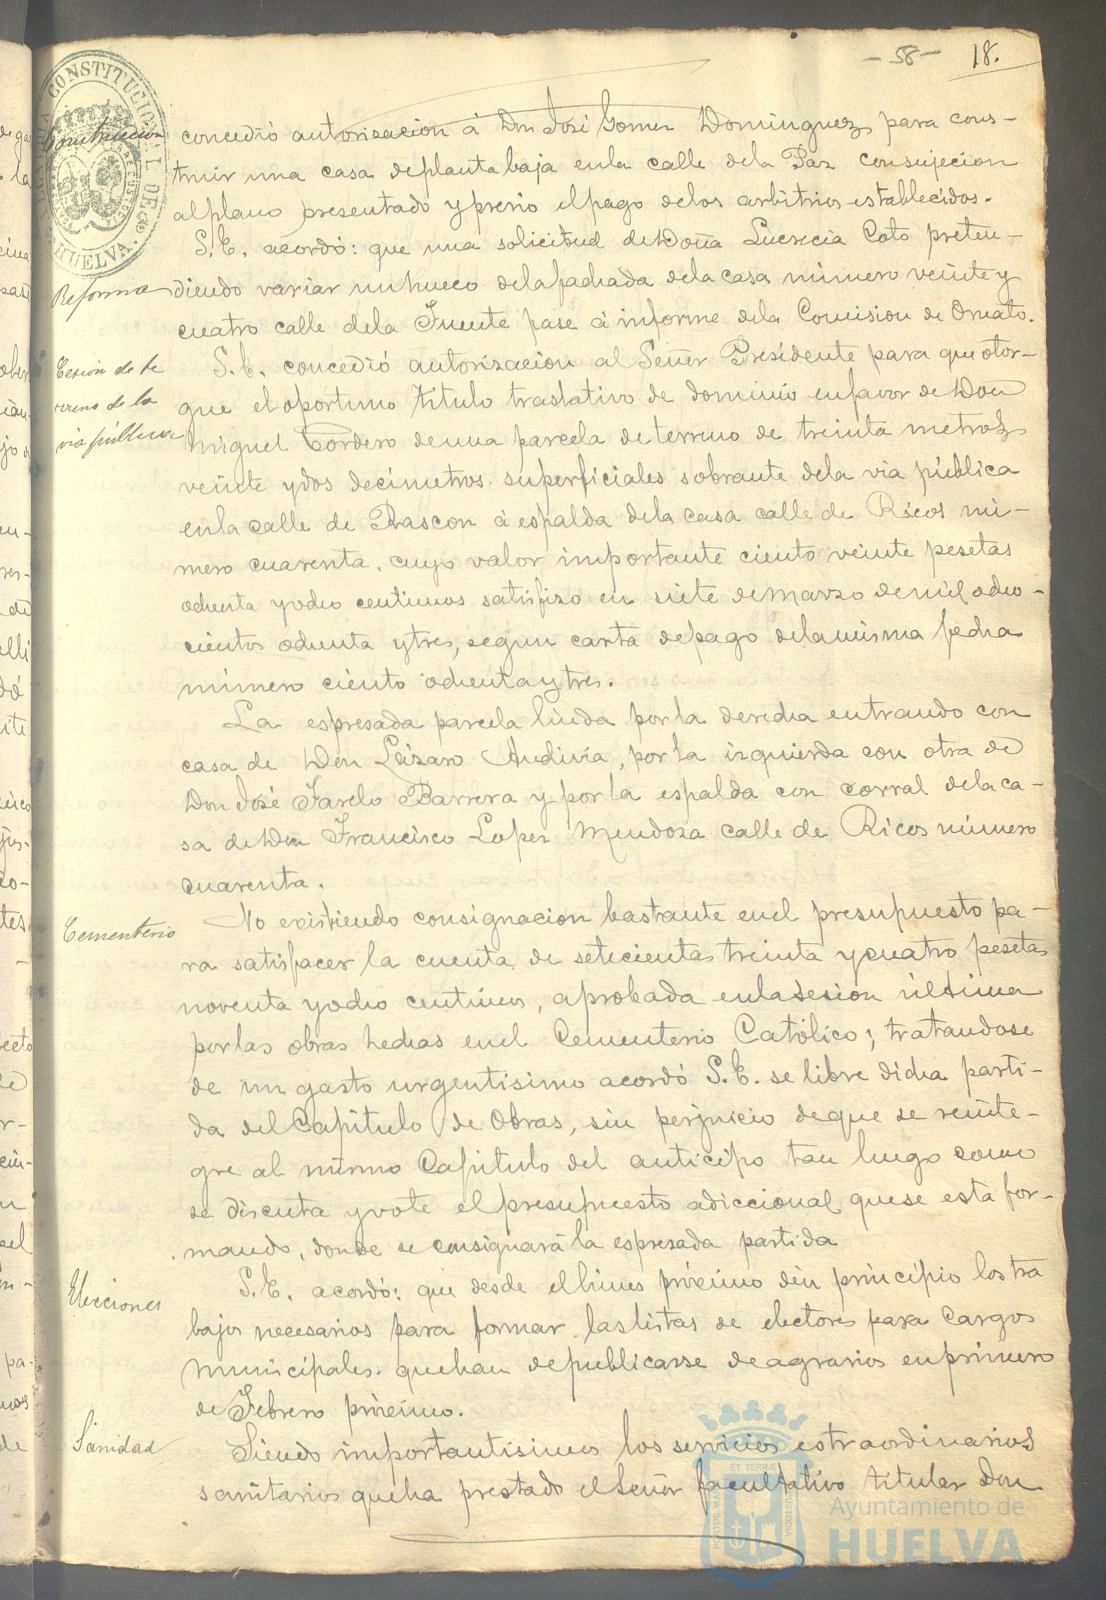 - 58 - 18.
CONSTITUCIONAL DE HUELVA
Construccion
concedió autorizacion á Don José Gomez Dominguez para cons-
truir una casa de planta baja en la calle de la Paz con sujecion
al plano presentado y previo el pago de los arbitrios establecidos.
S.E. acordó: que una solicitud de Doña Lucrecia Coto preten-
Reforma
diendo variar un hueco de la fachada de la casa número veinte y
cuatro calle de la Fuente pase á informe de la Comision de Ornato.
Cesión de te
rreno de la
via pública
S.E. concedió autorizacion al Señor Presidente para que otor-
gue el oportuno título traslativo de dominio en favor de Don
Miguel Cordero de una parcela de terreno de treinta metros
veinte y dos decímetros superficiales sobrante de la via pública
en la calle de Rascon á espalda de la casa calle de Ricos nú-
mero cuarenta, cuyo valor importante ciento veinte pesetas
ochenta y ocho centimos satisfizo en siete de Marzo de mil ocho-
cientos ochenta y tres, segun carta de pago de la misma fecha
número ciento ochenta y tres.
La espresada parcela linda por la derecha entrando con
casa de Don Lázaro Andivia, por la izquierda con otra de
Don José Farelo Barrera y por la espalda con corral de la ca-
sa de Don Francisco Lopez Mendoza calle de Ricos número
cuarenta.
Cementerio
No existiendo consignacion bastante en el presupuesto pa-
ra satisfacer la cuenta de setecientas treinta y cuatro pesetas
noventa y ocho centimos, aprobada en la sesion última
por las obras hechas en el Cementerio Católico; tratandose
de un gasto urgentisimo acordó S.E. se libre dicha parti-
da del Capitulo de Obras, sin perjuicio de que se reinte-
gre al mismo Capitulo del anticipo tan luego como
se discuta y vote el presupuesto adiccional que se esta for-
mando, donde se consignará la espresada partida
Elecciones
S.E. acordó: que desde el lunes próximo den principio los tra
bajos necesarios para formar las listas de electores para cargos
municipales que han de publicarse en primero
de Febrero próximo.
Sanidad
Siendo importantisimos los servicios estraordinarios
sanitarios que ha prestado el Señor facultativo titular Don
Ayuntamiento de
HUELVA